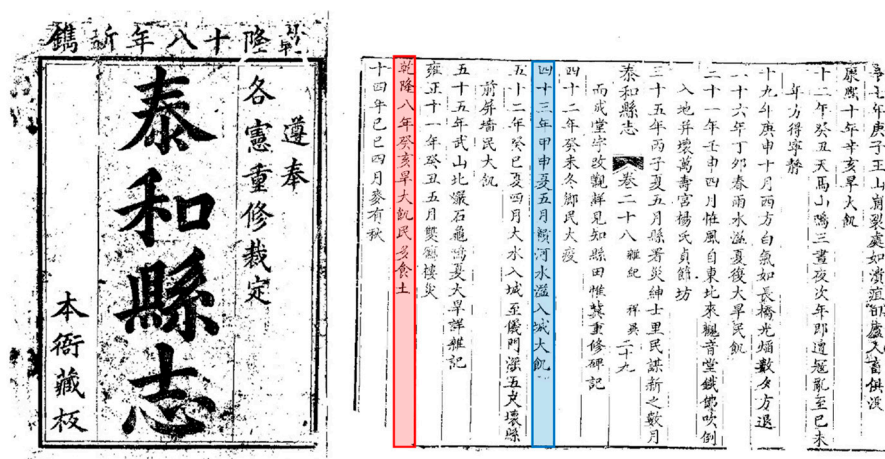 乾隆十八年新鐫
遵奉
各憲重修裁定
泰和縣志
本衙藏板
康熙十年辛亥旱大飢
十二年癸丑天馬山鳴三晝夜次年即遭冦亂至己未
年方得寧靜
十九年庚申十月西方白氣如長橋光熖數夕方退
二十六年丁卯春雨水溢夏復大旱民飢
二十一年壬申四月恠風自東北來觀音堂鐵佛吹倒
入地并壞萬壽宮楊氏貞節坊
三十五年丙子夏五月縣署災紳士里民謀新之數月
泰和縣志 卷二十八 雜紀 祥異 二十九
而成堂宇改觀詳見知縣田惟冀重修碑記
四十二年癸未冬鄉民大疫
四十三年甲申夏五月贛河水溢入城大飢
五十二年癸巳夏四月大水入城至儀門深五尺壞縣
前屏墻民大飢
五十五年武山北巖石龜鳴夏大旱詳雜記
雍正十一年癸丑五月雙樓災
乾隆八年癸亥旱大飢民多食土
十四年己巳四月麥有秋